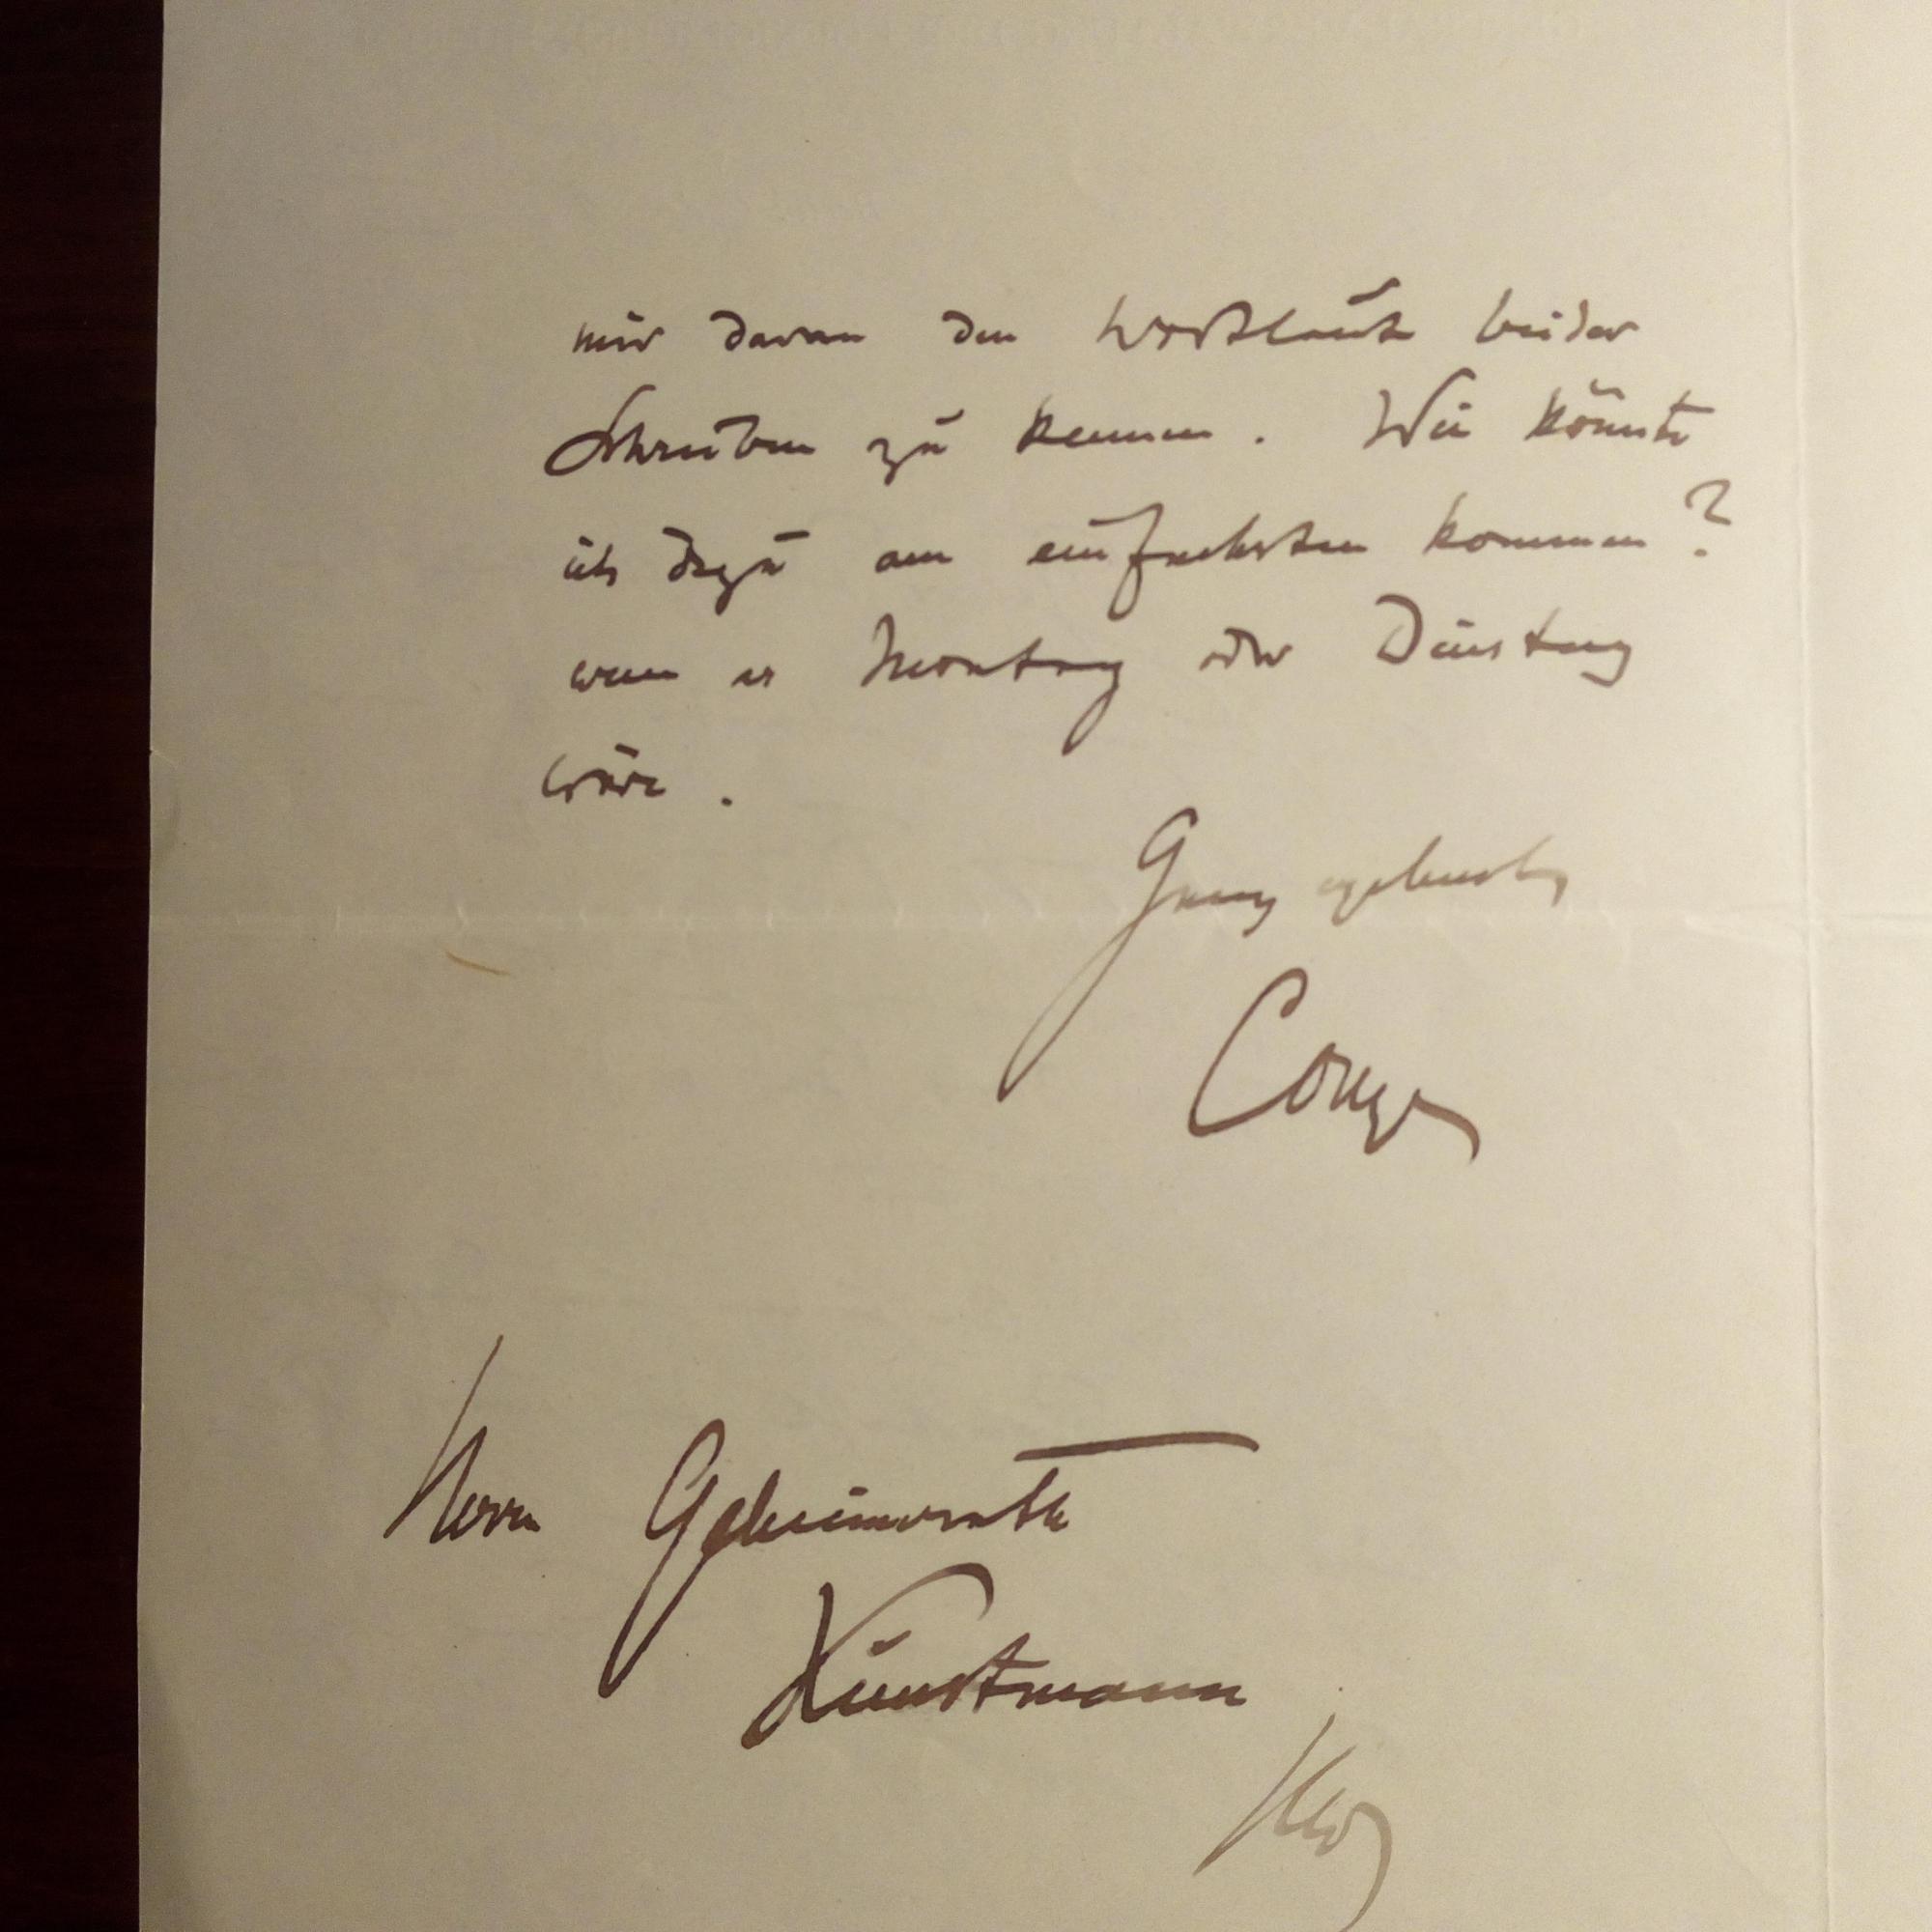 mir daran den Wortlaut beider
Schreiben zu kennen. Wie könnte
ich dazu am einfachsten kommen?
wenn es Montag oder Dienstag
wäre.
Ganz ergebenst
Conze
Herrn Geheimrath
Kunstmann